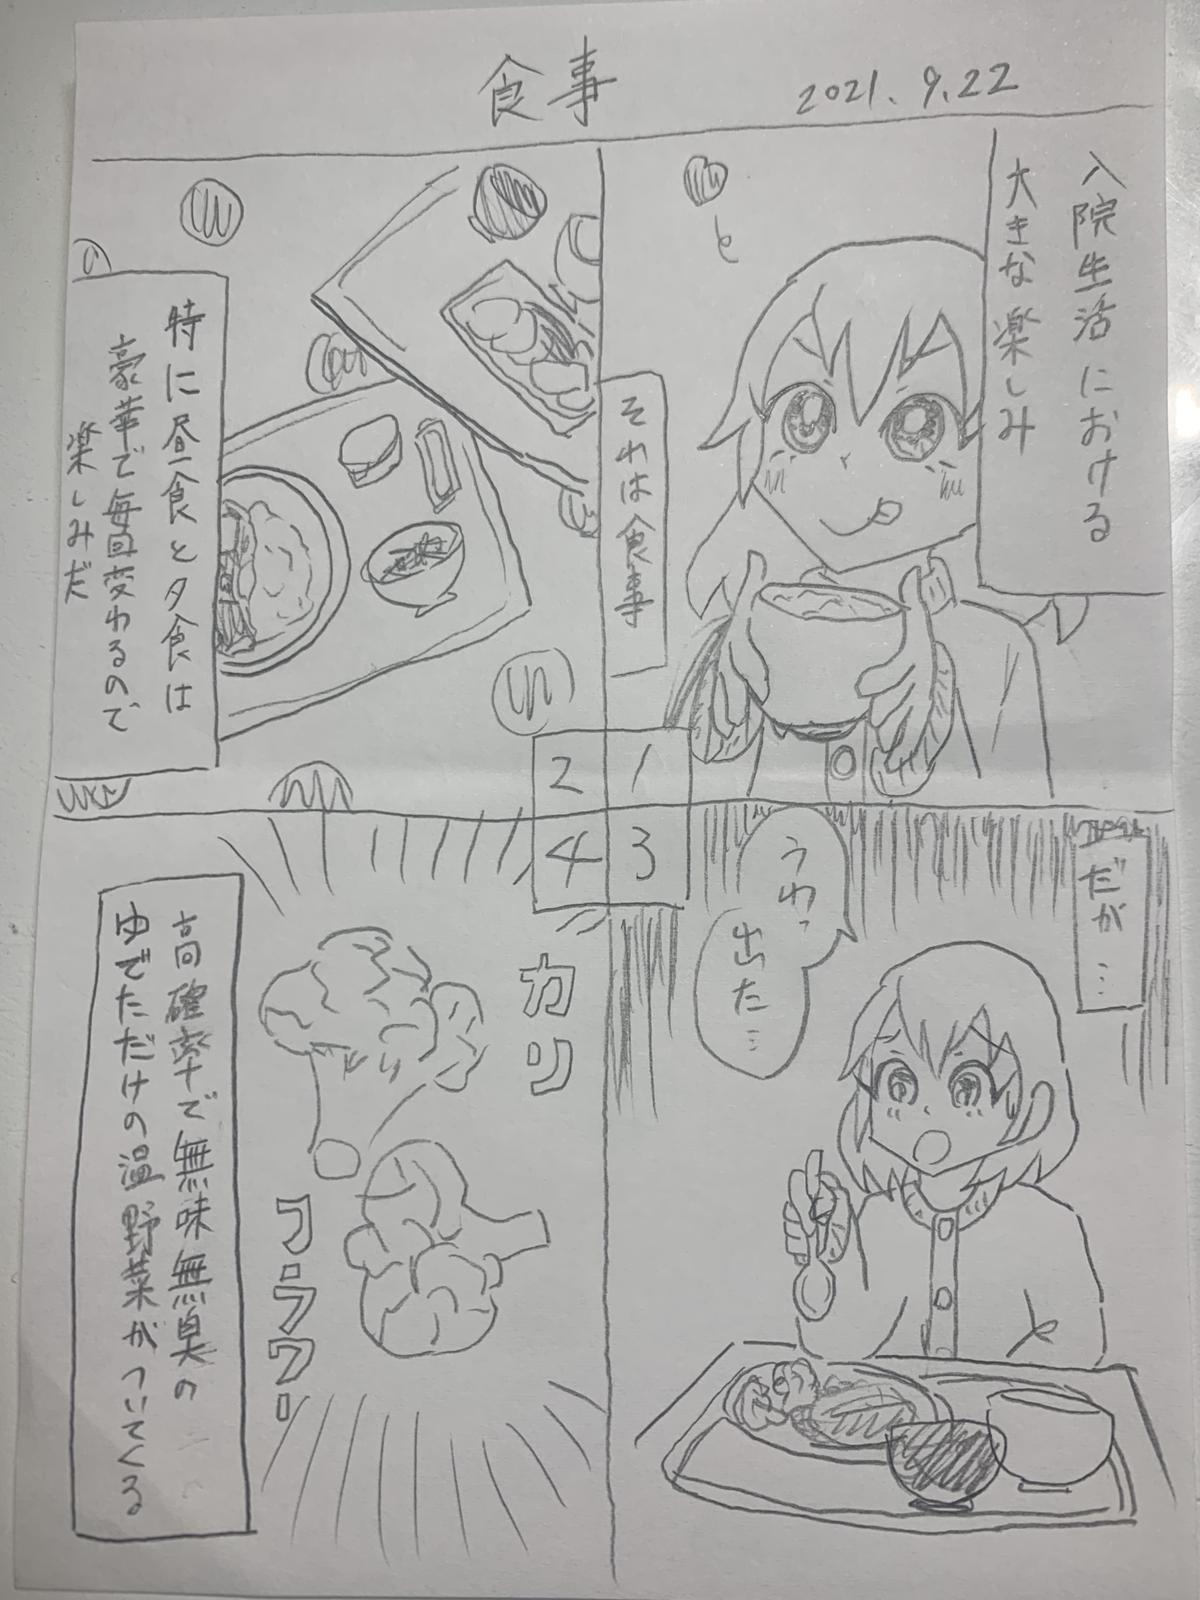 食事
2021.9.22
入院生活における
大きな楽しみ
と
それは食事
特に昼食と夕食は
豪華で毎回変わるので
楽しみだ
2 1
4 3
だが…
うわっ
出た…
カリ
フラワー
高確率で無味無臭の
ゆでただけの温野菜がついてくる